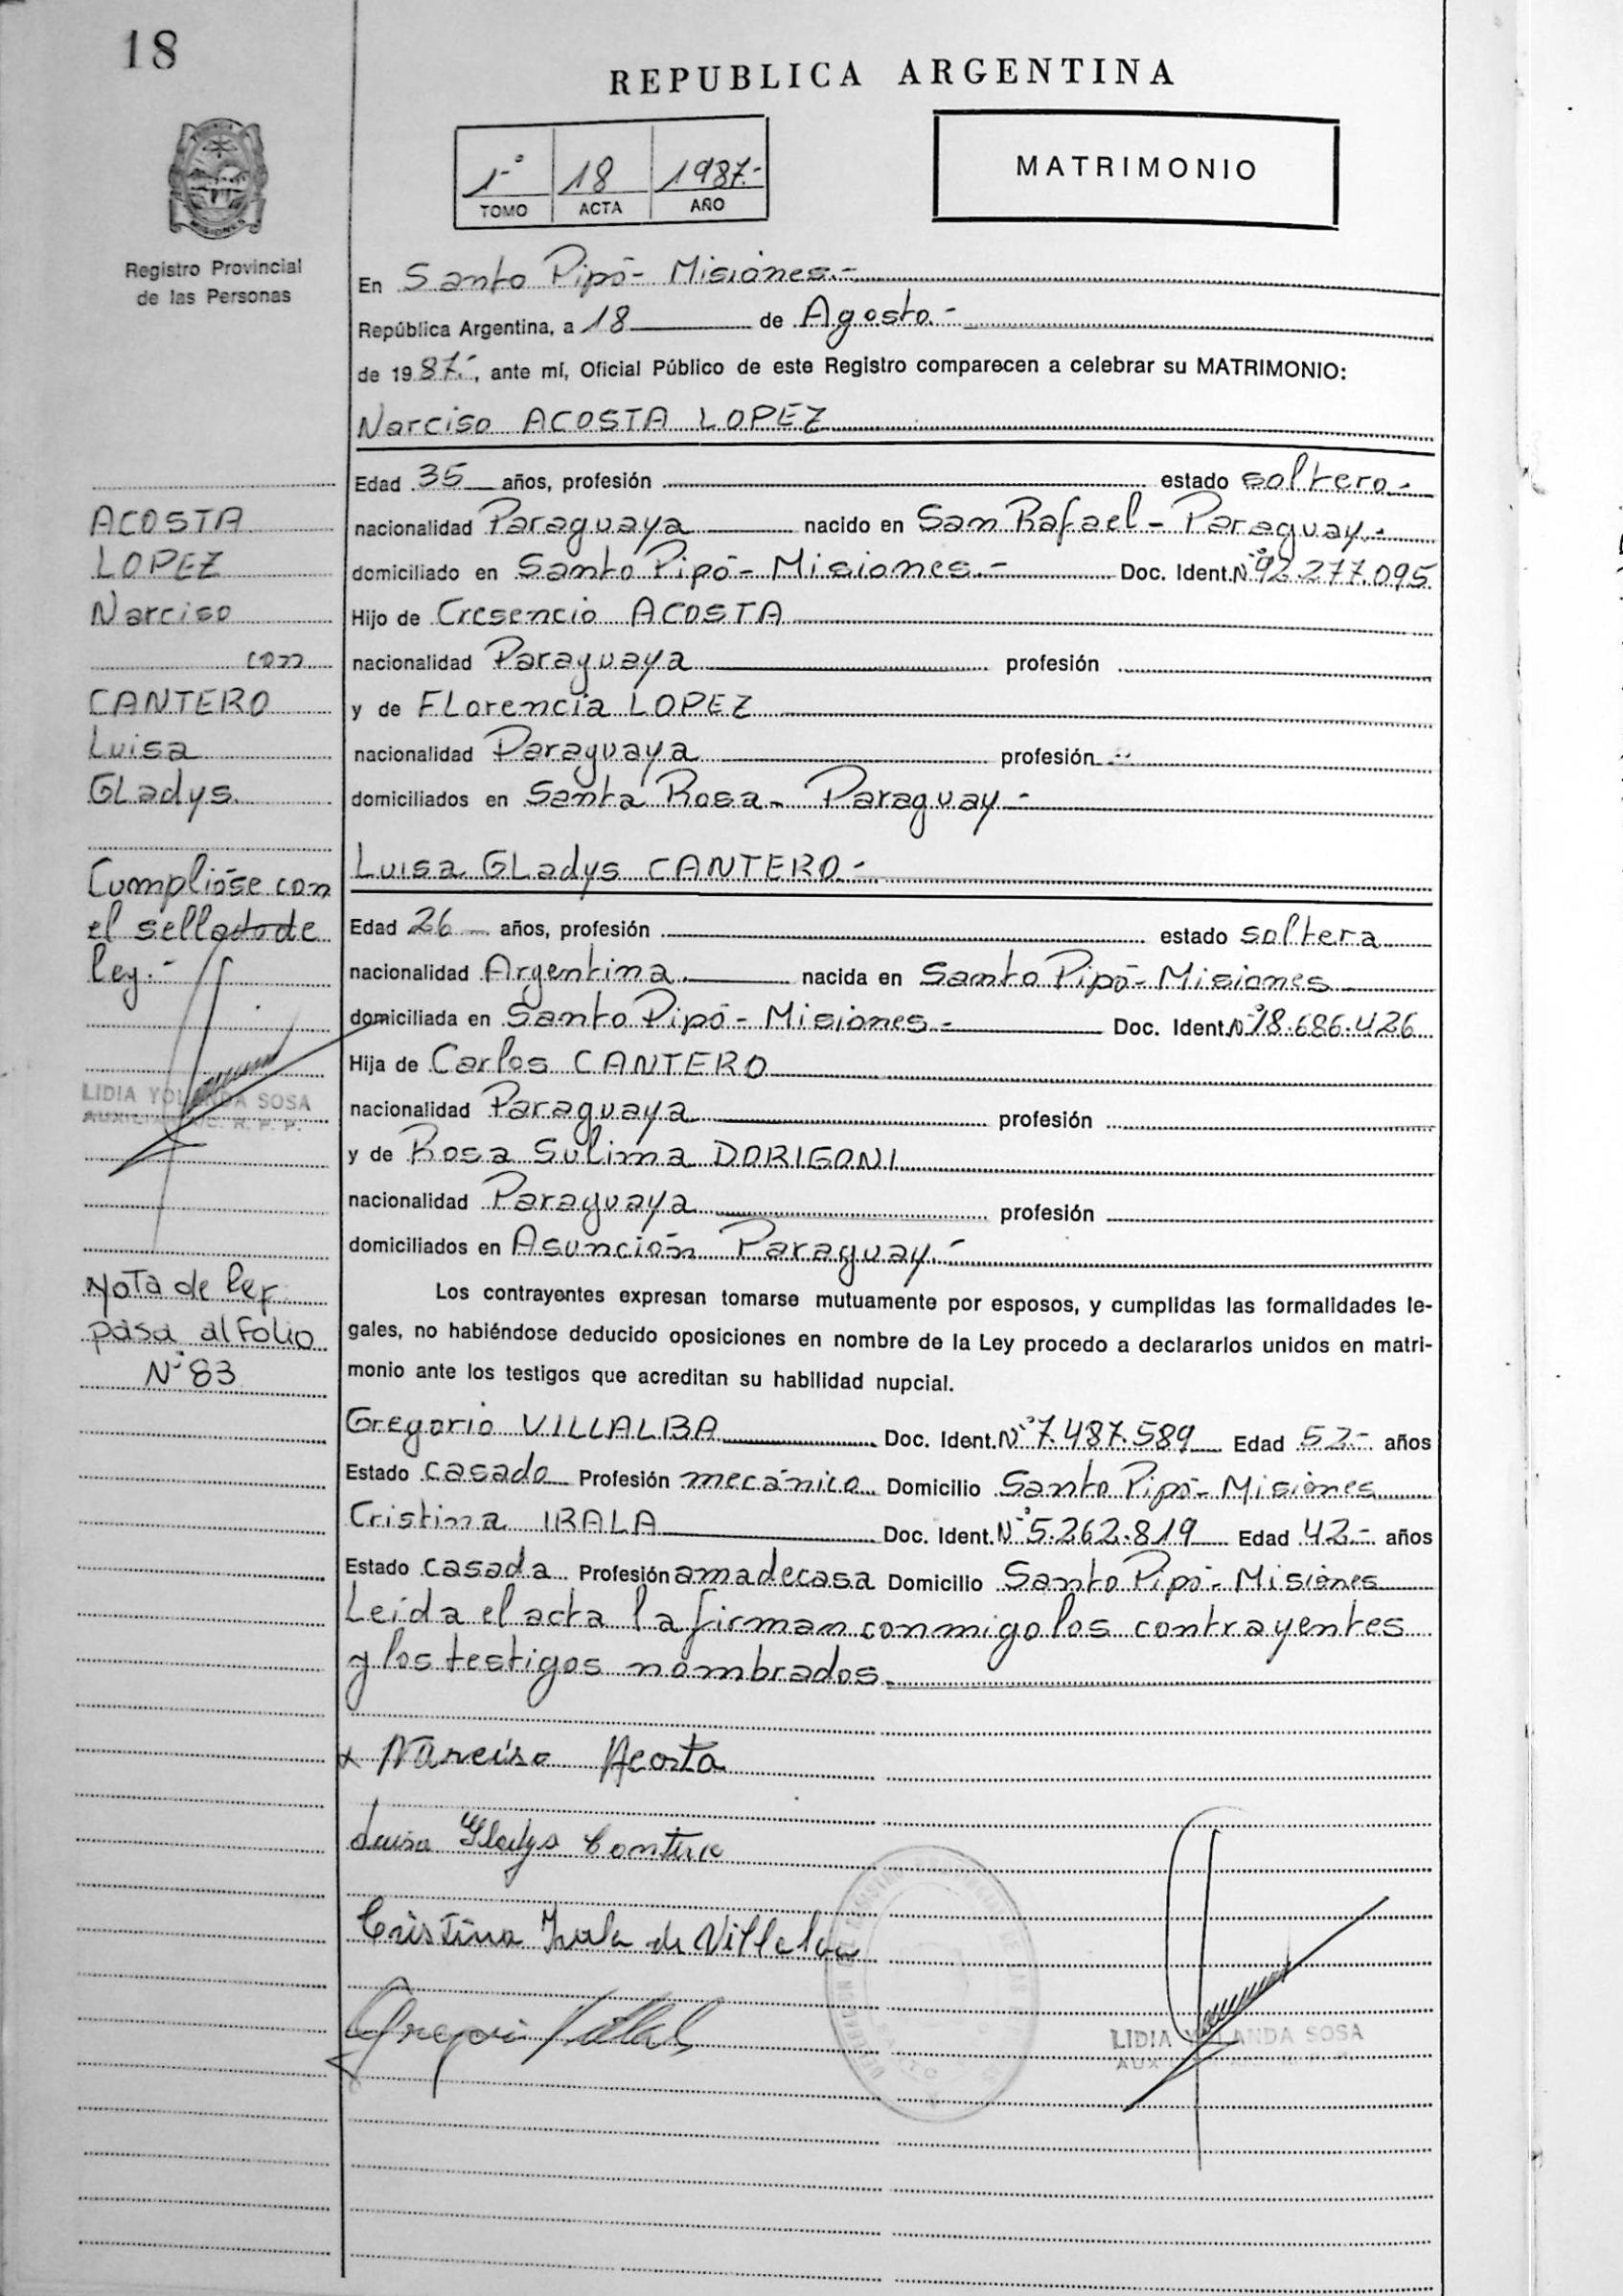 18
REPUBLICA ARGENTINA
1º 18 1987.-
TOMO ACTA AÑO
MATRIMONIO
MISIONES
Registro Provincial
de las Personas
En Santo Pipó - Misiones.-
República Argentina, a 18 de Agosto.-
de 1987.-, ante mí, Oficial Público de este Registro comparecen a celebrar su MATRIMONIO:
Narciso ACOSTA LOPEZ
Edad 35 años, profesión estado soltero.-
nacionalidad Paraguaya nacido en San Rafael - Paraguay.-
domiciliado en Santo Pipó - Misiones.- Doc. Ident. Nº 92.277.095
Hijo de Cresencio ACOSTA
nacionalidad Paraguaya profesión
y de FLorencia LOPEZ
nacionalidad Paraguaya profesión
domiciliados en Santa Rosa - Paraguay.-
Luisa GLadys CANTERO.-
Edad 26 años, profesión estado soltera
nacionalidad Argentina nacida en Santo Pipó - Misiones
domiciliada en Santo Pipó - Misiones.- Doc. Ident. Nº 18.686.426
Hija de Carlos CANTERO
nacionalidad Paraguaya profesión
y de Rosa Sulima DORIGONI
nacionalidad Paraguaya profesión
domiciliados en Asunción Paraguay.-
Los contrayentes expresan tomarse mutuamente por esposos, y cumplidas las formalidades le-
gales, no habiéndose deducido oposiciones en nombre de la Ley procedo a declararlos unidos en matri-
monio ante los testigos que acreditan su habilidad nupcial.
Gregorio VILLALBA Doc. Ident. Nº 7.487.589 Edad 52.- años
Estado casado Profesión mecánico Domicilio Santo Pipó - Misiones
Cristina IRALA Doc. Ident. Nº 5.262.819 Edad 42.- años
Estado casada Profesión ama de casa Domicilio Santo Pipó - Misiones
Leída el acta la firman conmigo los contrayentes
y los testigos nombrados.
x Narciso Acosta
Luisa Gladys Cantero
Cristina Irala de Villalba
LIDIA YOLANDA SOSA
ACOSTA
LOPEZ
Narciso
con
CANTERO
Luisa
GLadys
Cumplióse con
el sellado de
ley.-
LIDIA YOLANDA SOSA
Nota de ley
pasa al folio
Nº 83